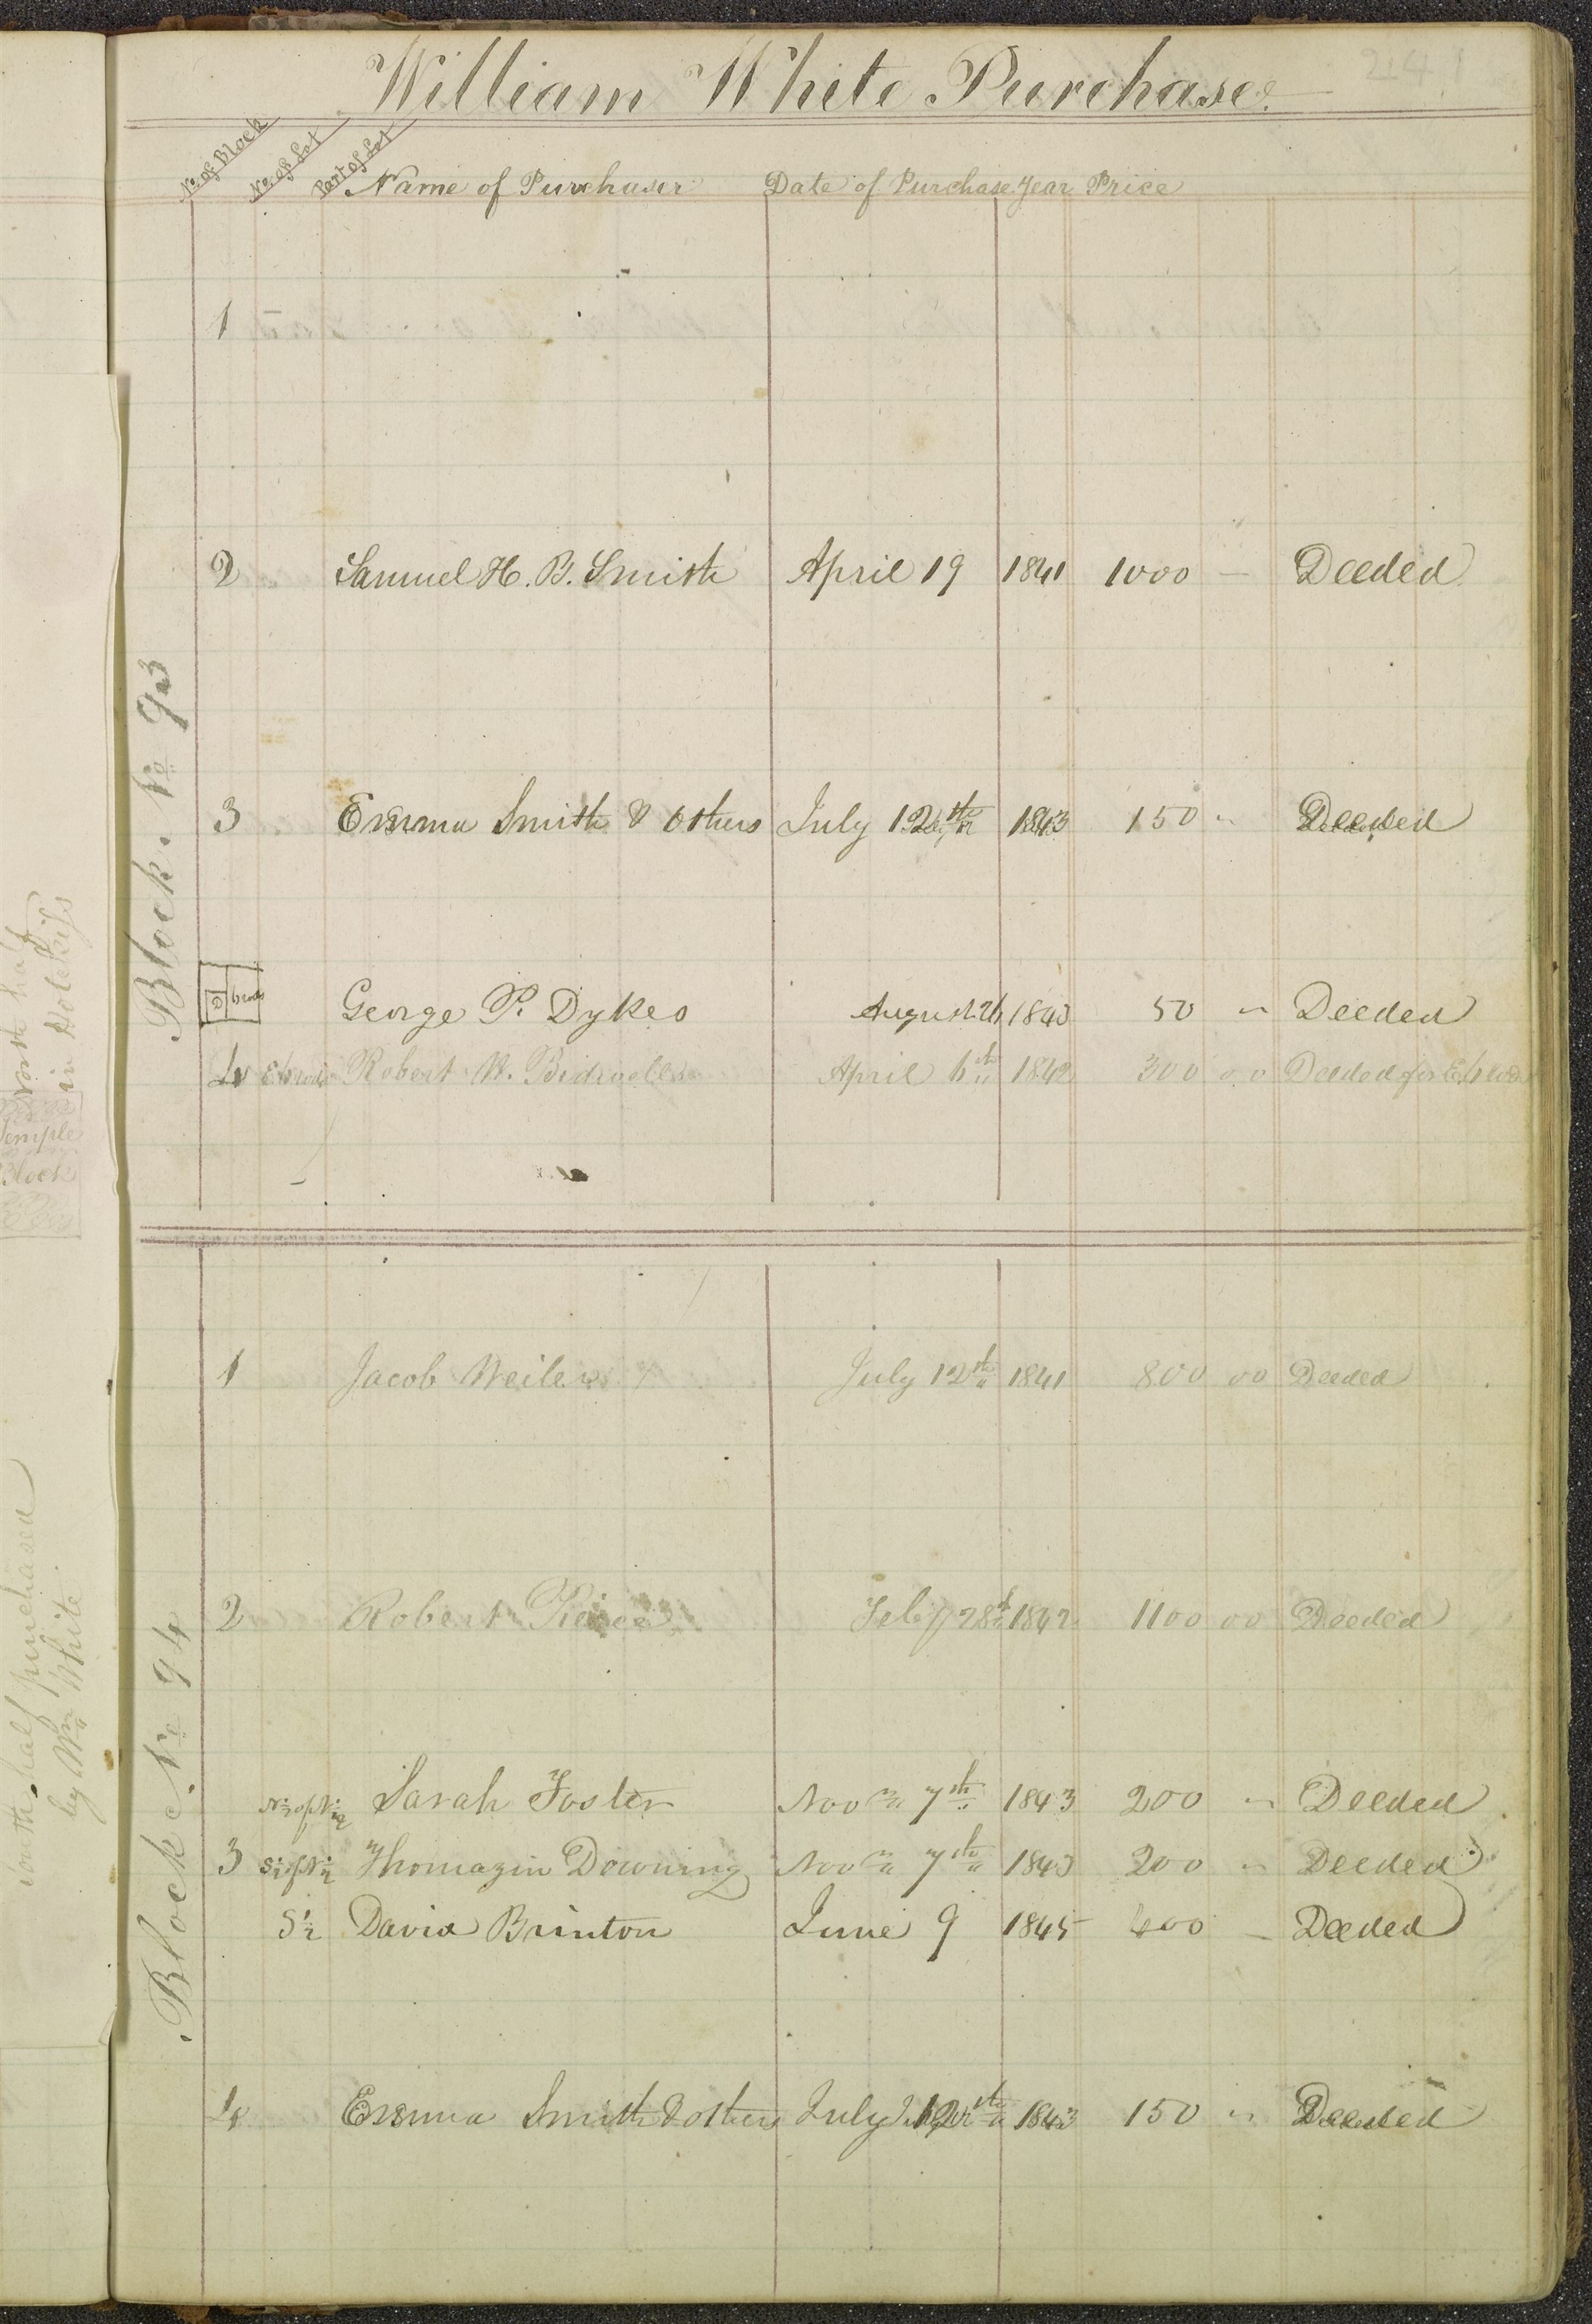 241
William White Purchase.
No. of Block No. of Lot Part of Lot Name of Purchaser Date of Purchase Year Price
Block No 93
1
2 Samuel H. B. Smith April 19 1841 1000 — Deeded
3 Emma Smith & others July 12th 1843 150 " Deeded
George P. Dykes August 26 1843 50 " Deeded
4 Robert W. Bidwell April 6th 1842 300 00 Deeded for
Block No 94
1 Jacob Weiler July 12th 1841 800 00 Deeded
2 Robert Peirce Feby 28th 1842 1100 00 Deeded
N ½ of N ½ Sarah Foster Nov 7th 1843 200 " Deeded
3 S ½ of N ½ Thomazin Downing Nov 7th 1843 200 " Deeded
S ½ David Brinton June 9 1845 400 – Deeded
4 Emma Smith & others July 12th 1843 150 " Deeded
North half
in
Temple
Block
South half purchased
by Wm White